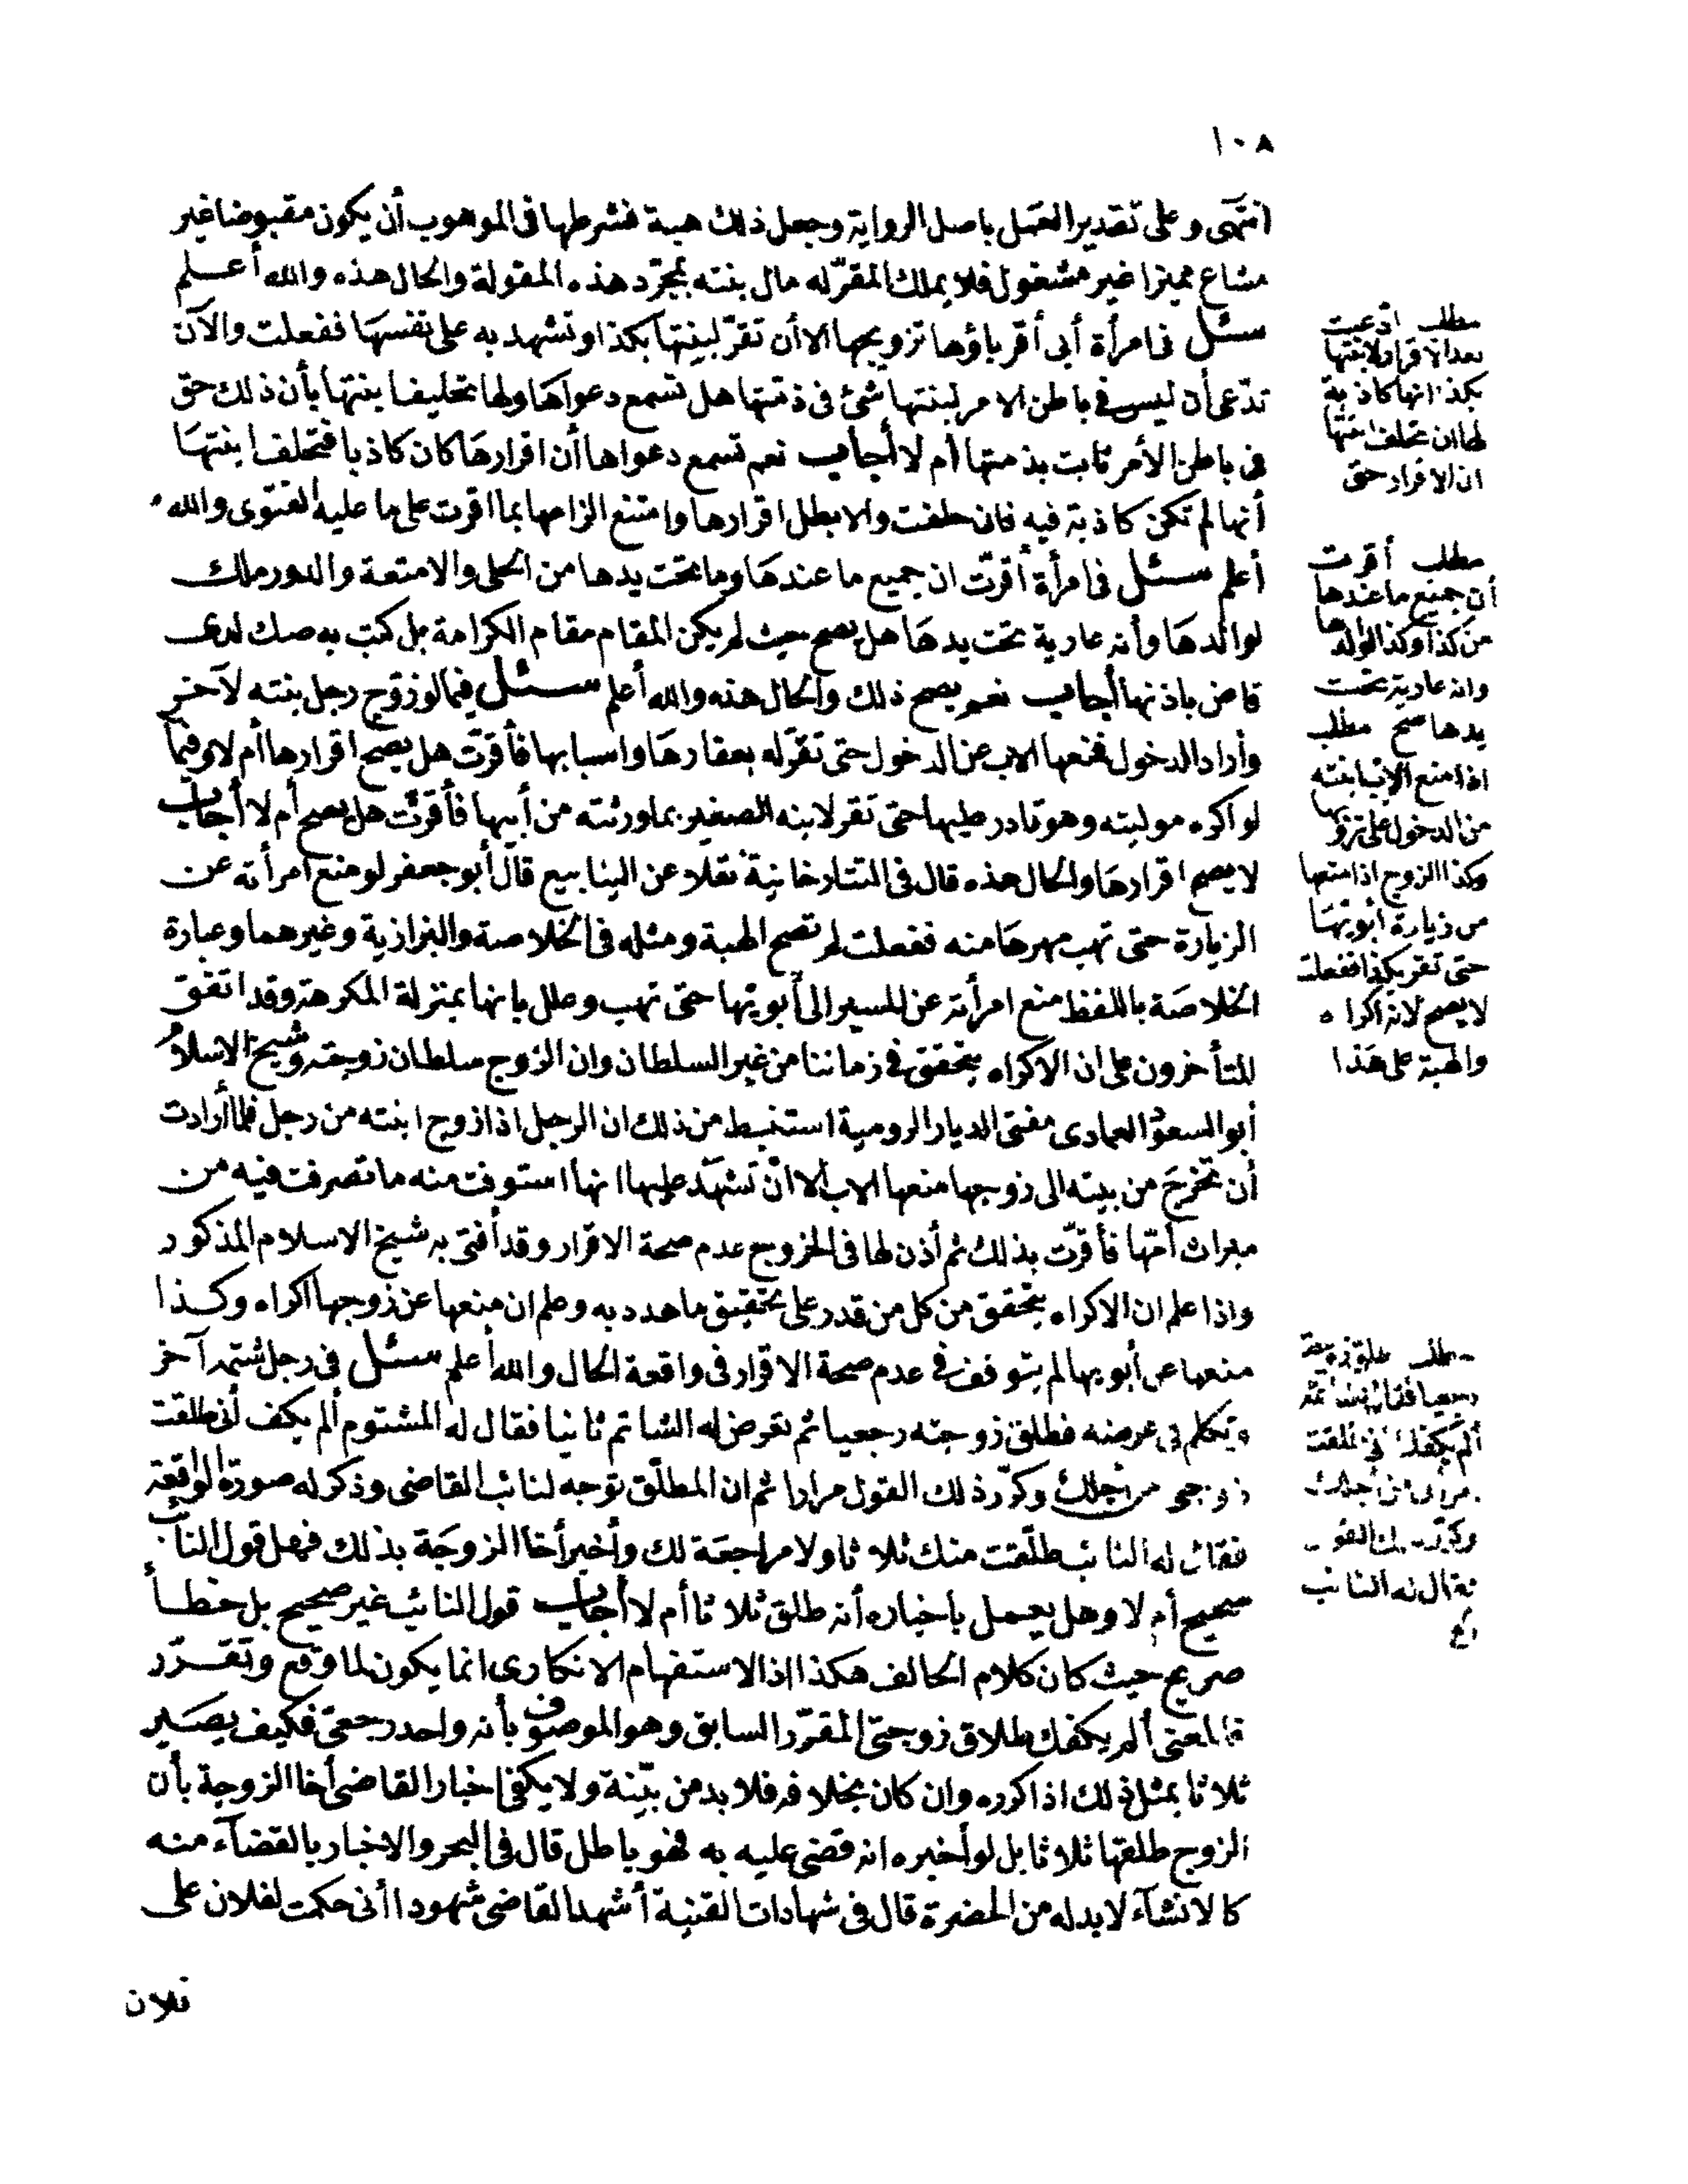 ١٠٨
انتهى وعلى تقدير العمل باصل الرواية وجعل ذلك هبة فشرطها فى الموهوب أن يكون مقبوضا غير
مشاع مميزا غير مشغول فلا يملك المقرّ له مال بنته بمجرّد هذه المقولة والحال هذه والله أعلم
سئل فى امرأة أبى أقرباؤها تزويجها الا أن تقرّ لبنتها بكذا وتشهد به على نفسها ففعلت والآن
تدّعى أن ليس فى باطن الامر لبنتها شئ فى ذمتها هل تسمع دعواها ولها تحليف ابنتها بأن ذلك حق
فى باطن الأمر ثابت بذمتها أم لا أجاب نعم تسمع دعواها أن اقرارها كان كاذبا فتحلف ابنتها
أنها لم تكن كاذبة فيه فان حلفت والا بطل اقرارها وامتنع الزامها بما اقرت على ما عليه الفتوى والله
أعلم سئل فى امرأة أقرّت ان جميع ما عندها وما تحت يدها من الحلى والامتعة والدور ملك
لوالدها وأنه عارية تحت يدها هل يصح حيث لم يكن المقام مقام الكرامة بل كتب به صك لدى
قاض باذنها أجاب نعم يصح ذلك والحال هذه والله أعلم سئل فيما لو زوّج رجل بنته لآخر
وأراد الدخول فمنعها الاب عن الدخول حتى تقرّ له بعقارها واسبابها فأقرّت هل يصح اقرارها أم لا وفيما
لو اكره موليته وهو قادر عليها حتى تقر لابنه الصغير بما ورثته من أبيها فأقرّت هل يصح أم لا أجاب
لا يصح اقرارها والحال هذه قال فى التتارخانية نقلا عن الينابيع قال أبو جعفر لو منع امرأته عن
الزيارة حتى تهب مهرها منه ففعلت لم تصح الهبة ومثله فى الخلاصة والبزازية وغيرهما وعبارة
الخلاصة باللفظ منع امرأته عن المسير الى أبويها حتى تهب وعلل بانها بمنزلة المكرهة وقد اتفق
المتأخرون على ان الاكراه يتحقق فى زماننا من غير السلطان وان الزوج سلطان زوجته وشيخ الاسلام
أبو السعود العمادى مفتى الديار الرومية استنبط من ذلك ان الرجل اذا زوج ابنته من رجل فلما أرادت
أن تخرج من بيته الى زوجها منعها الاب الا انّ تشهّد عليها انها استوفت منه ما تصرفت فيه من
ميراث أمّها فأقرّت بذلك ثم أذن لها فى الخروج عدم صحة الاقرار وقد أفتى به شيخ الاسلام المذكور
واذا علم ان الاكراه يتحقق من كل من قدر على تحقيق ما هدد به وعلم ان منعها عن زوجها اكراه وكذا
منعها عن أبويها لم يتوقف فى عدم صحة الاقرار فى واقعة الحال والله أعلم سئل فى رجل شتمه آخر
وتكلم فى عرضه فطلق زوجته رجعيا ثم تعرض له الشاتم ثانيا فقال له المشتوم ألم يكف أنى طلقت
زوجتى من أجلك وكرّر ذلك القول مرارا ثم ان المطلّق توجه لنائب القاضى وذكر له صورة الواقعة
فقال له النائب طلّقت منك ثلاثا ولا مراجعة لك وأخبر أخا الزوجة بذلك فهل قول النائب
صحيح أم لا وهل يعمل باخباره أنه طلق ثلاثا أم لا أجاب قول النائب غير صحيح بل خطأ
صريح حيث كان كلام الحالف هكذا اذ الاستفهام الانكارى انما يكون لما وقع وتقرّر
فالمعنى ألم يكفك طلاق زوجتى المقرّر السابق وهو الموصوف بأنه واحد رجعىّ فكيف يصير
ثلاثا بمثل ذلك اذا كرره وان كان بخلافه فلا بد من بيّنة ولا يكفى اخبار القاضى أخا الزوجة بأن
الزوج طلقها ثلاثا بل لو أخبره انه قضى عليه به فهو باطل قال فى البحر والاخبار بالقضاء منه
كالانشاء لا بد له من الحضرة قال فى شهادات القنية أشهد القاضى شهودا أنى حكمت لفلان على
فلان
مطلب ادّعت
بعد الاقرار لابنتها
بكذا انها كاذبة
لها ان تحلف ابنتها
ان الاقرار حق
مطلب أقرت
أن جميع ما عندها
من كذا وكذا لوالدها
وانه عارية تحت
يدها صح مطلب
اذا منع الاب ابنته
من الدخول على زوجها
وكذا الزوج اذا منعها
من زيارة أبويها
حتى تقر بكذا ففعلت
لا يصح لانه اكراه
والهبة على هذا
مطلب طلق زوجته
رجعيا فقال
ألم يكفك أنى طلقت
من أجلك
وكرّر ذلك القول
فقال له النائب
الخ